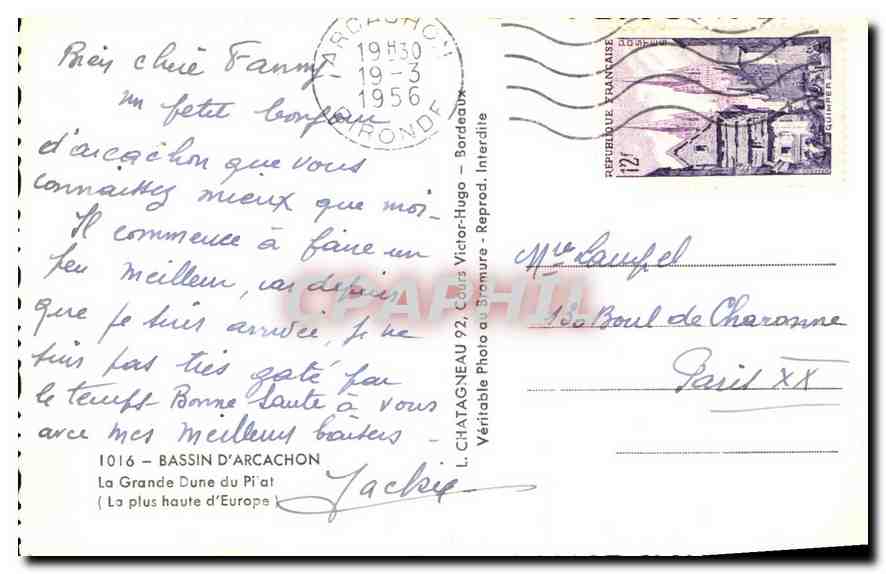 Bien chère Fanny
un petit bonjour
d'arcachon que vous
connaissez mieux que moi-
Il commence à faire un
peu meilleur, car depuis
que je suis arrivée, je ne
suis pas très gaté par
le temps- Bonne Santé à vous
avec mes meilleurs baisers -
Jackie
1016 - BASSIN D'ARCACHON
La Grande Dune du Pilat
( La plus haute d'Europe )
L. CHATAGNEAU 92, Cours Victor-Hugo - Bordeaux
Véritable Photo au Bromure - Reprod. Interdite
ARCACHON
19H30
19-3
1956
GIRONDE
RÉPUBLIQUE FRANÇAISE
POSTES
12F
QUIMPER
130 Boul de Charonne
Paris XX
CPAPHIL